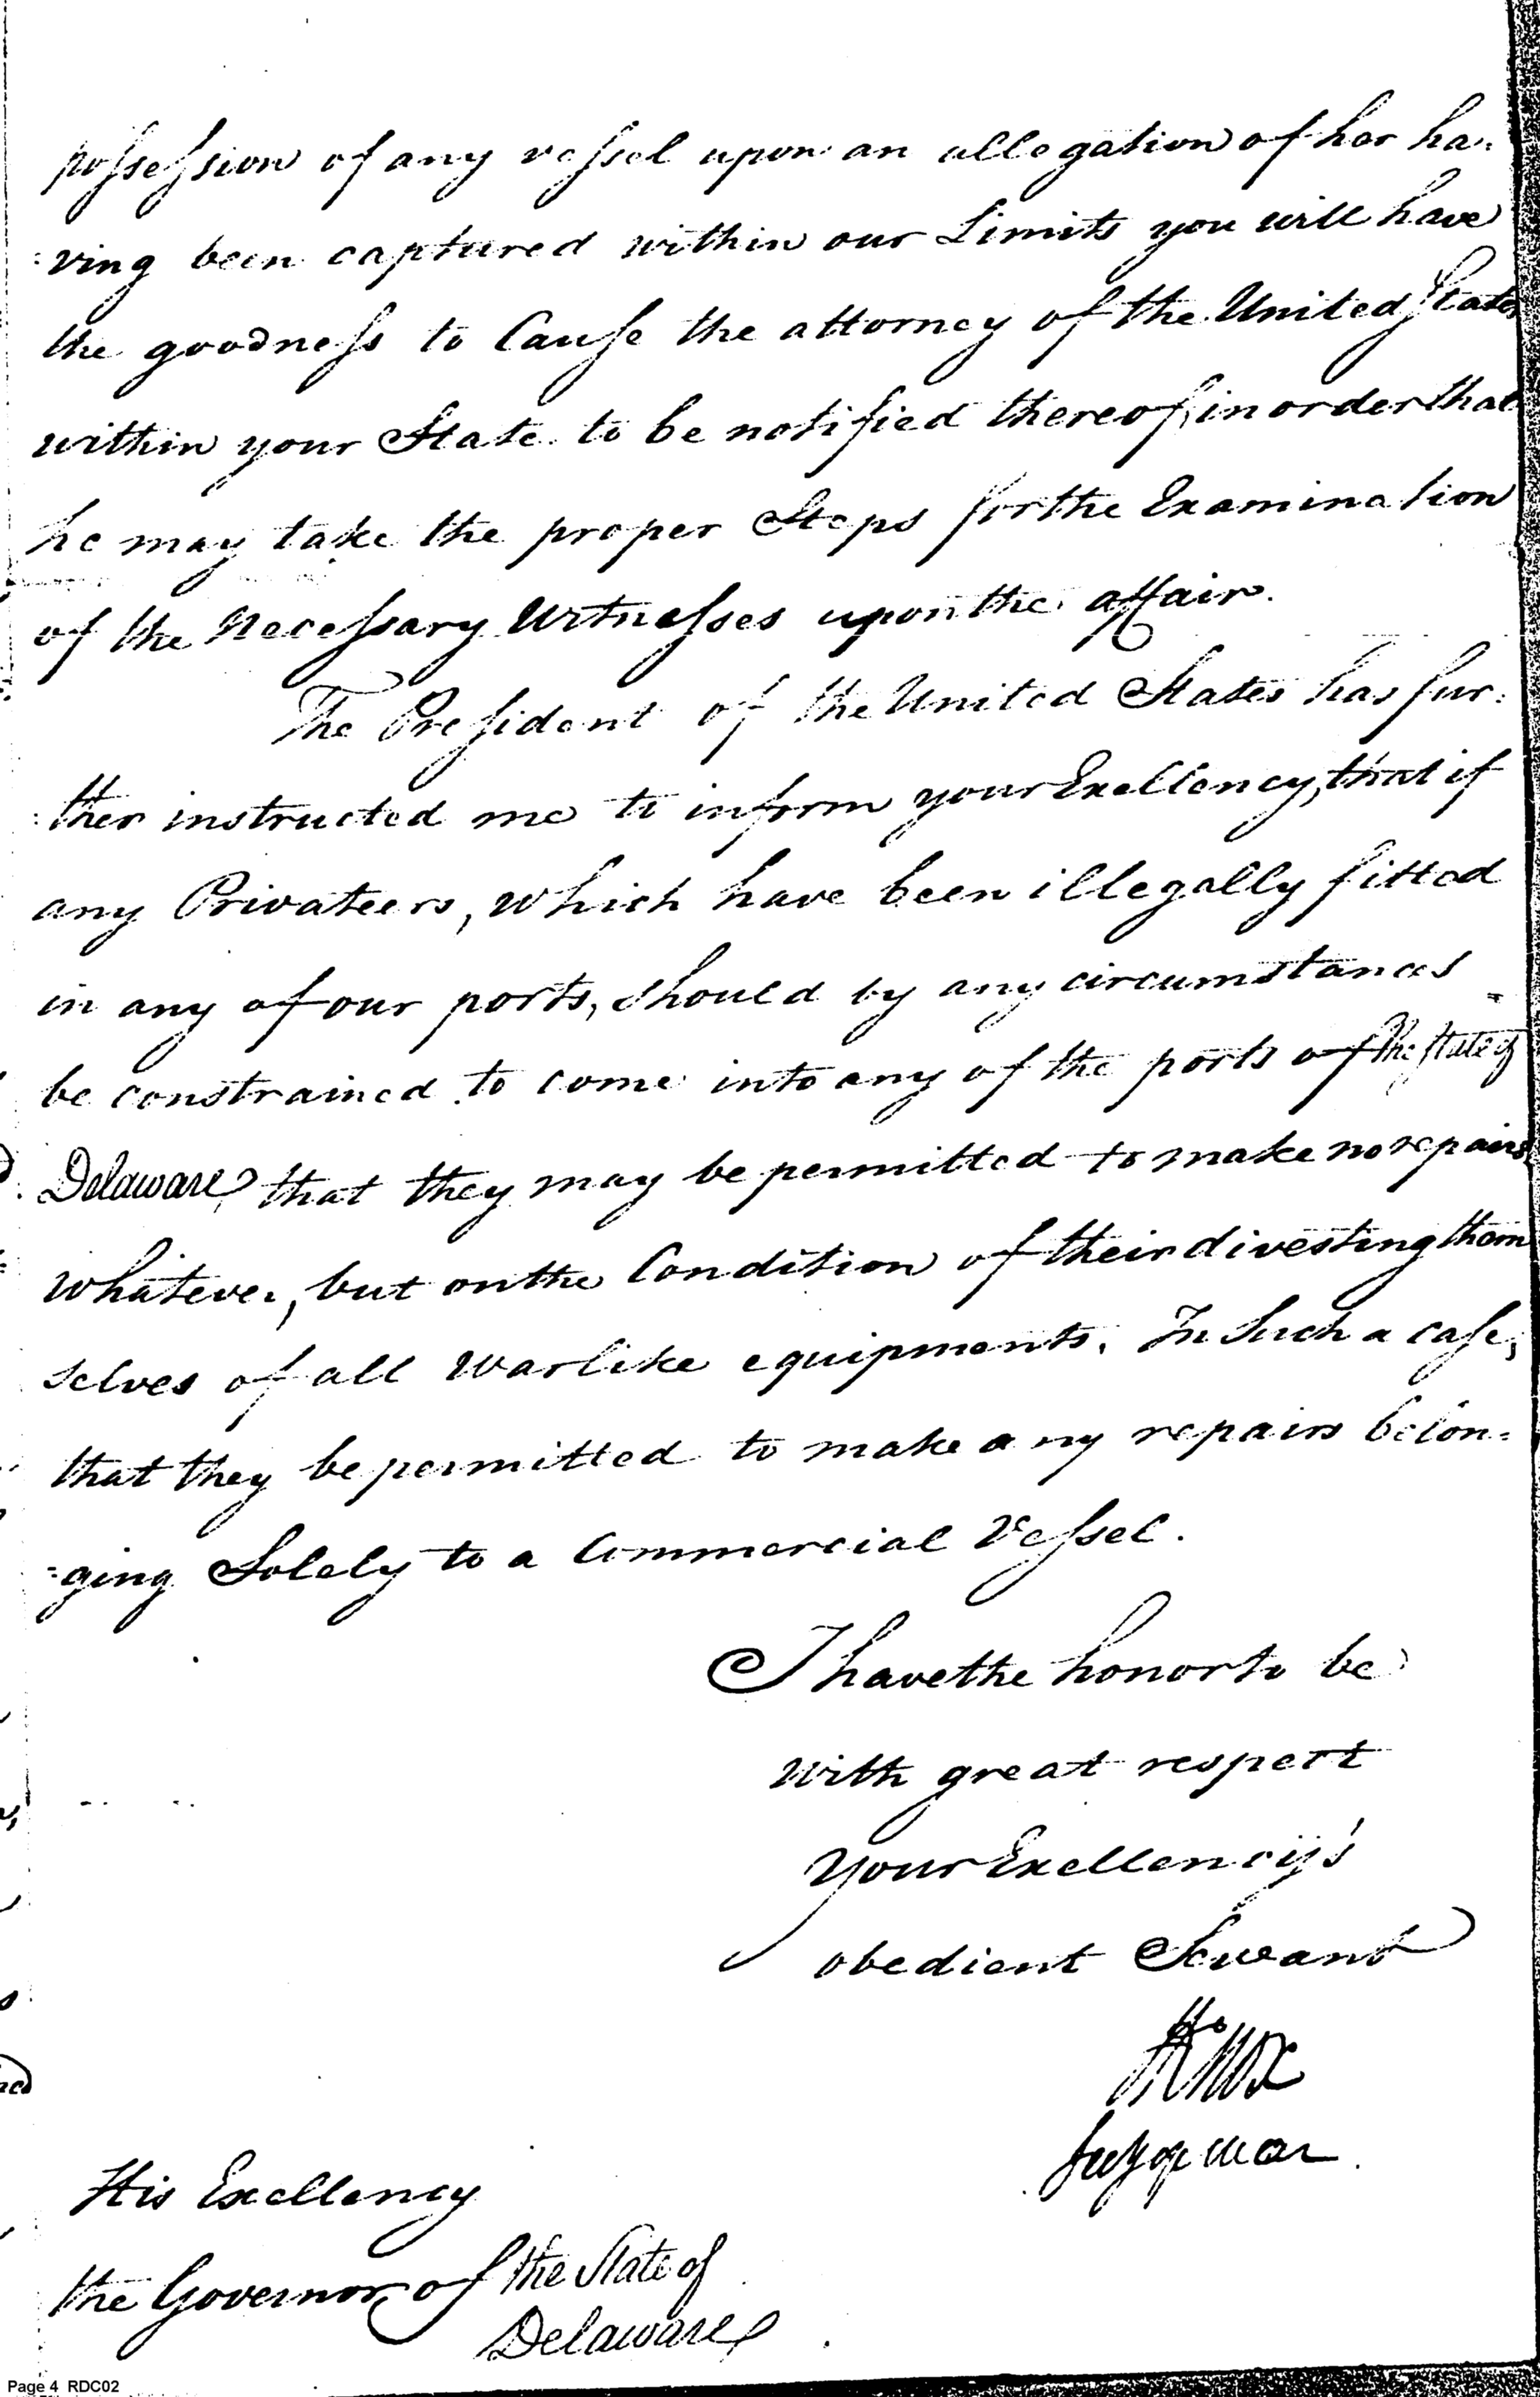 possession of any vessel upon an allegation of her ha:
:ving been captured within our Limits you will have
the goodness to Cause the attorney of the United States
within your State to be notified thereof, in order that
he may take the proper Steps for the Examination
of the Necessary Witnesses upon the affair.
The President of the United States has fur:
:ther instructed me to inform your Exellency, that if
any Privateers, which have been illegally fitted
in any of our ports, should by any circumstances
be constrained to come into any of the ports of the State of
Delaware, that they may be permitted to make no repairs
whatever, but on the Condition of their divesting them
selves of all warlike equipments. In Such a case,
that they be permitted to make any repairs belon:
:ging Solely to a Commercial Vessel.
I have the honor to be
with great respect
your Exellency's
obedient Servant
HKnox
Secy of War
His Exellency
the Governor of the State of
Delaware
Page 4 RDC02